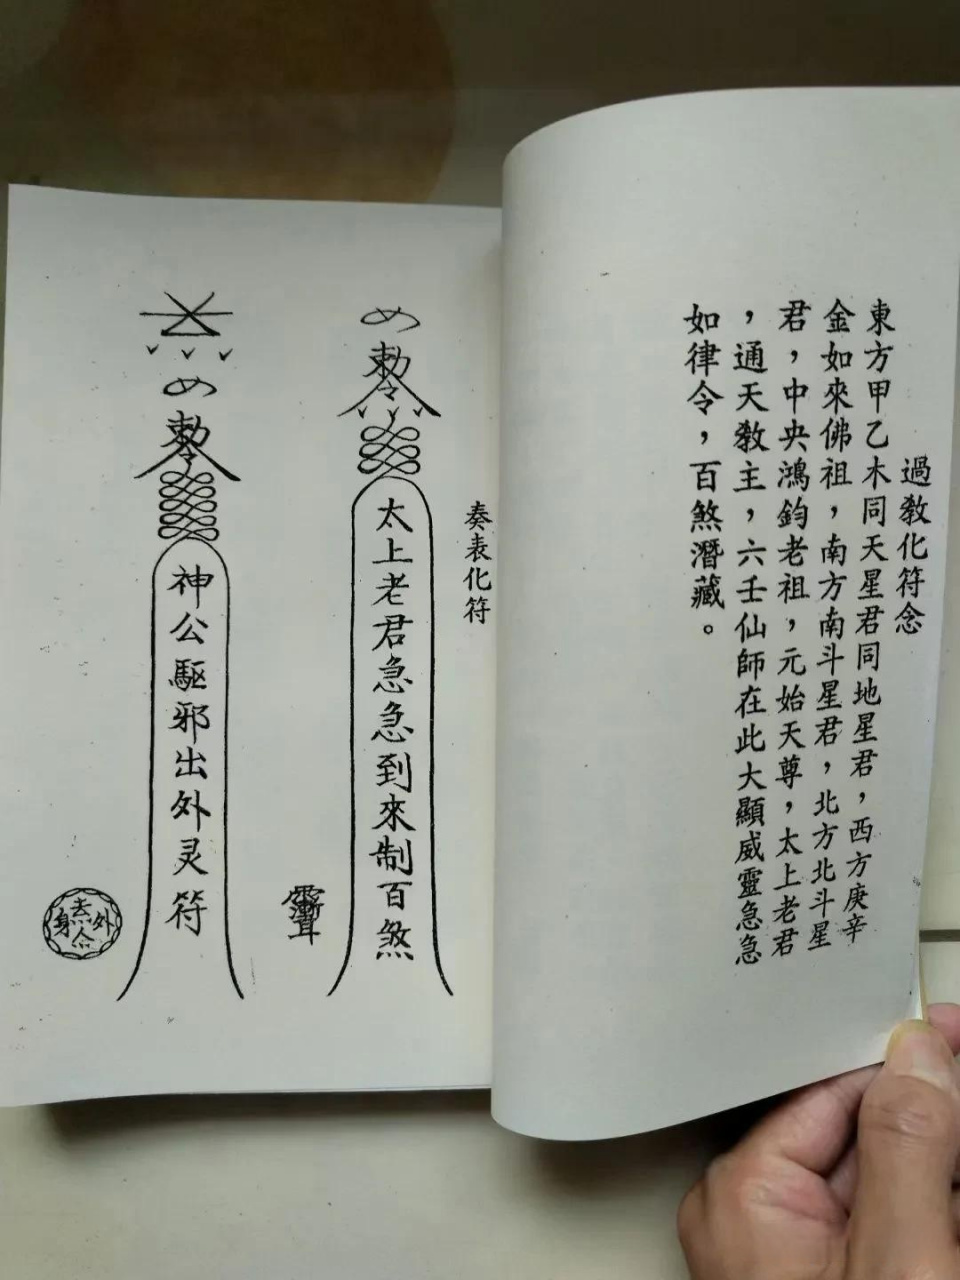 過教化符念
東方甲乙木同天星君同地星君，西方庚辛
金如來佛祖，南方南斗星君，北方北斗星
君，中央鴻鈞老祖，元始天尊，太上老君
，通天教主，六壬仙師在此大顯威靈急急
如律令，百煞潛藏。
奏表化符
め
勅令
太上老君急急到來制百煞
め
勅令
神公驅邪出外灵符
身
外